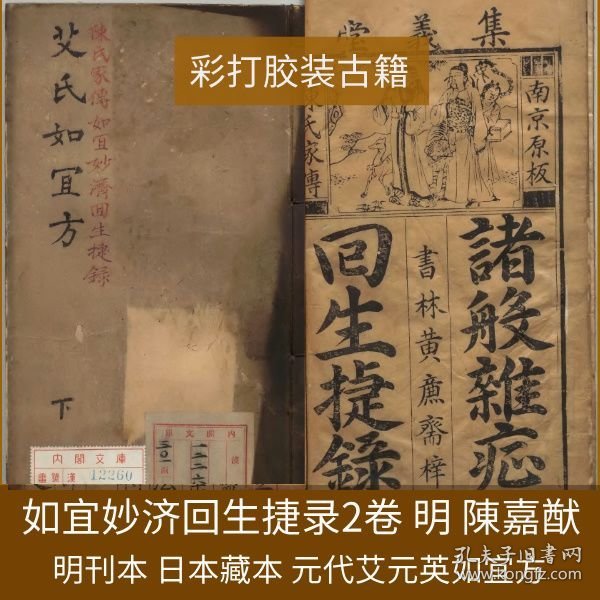 彩打胶装古籍
艾氏如宜方
陳氏家傳如宜妙濟回生捷錄
下
内閣文庫
漢
12260
内閣文庫
集義堂
南京原板
陳氏家傳
諸般雜症
書林黄廉斋梓
回生捷錄
如宜妙济回生捷录2卷 明 陳嘉猷
明刊本 日本藏本 元代艾元英如宜方
孔夫子旧书网
www.kongfz.com